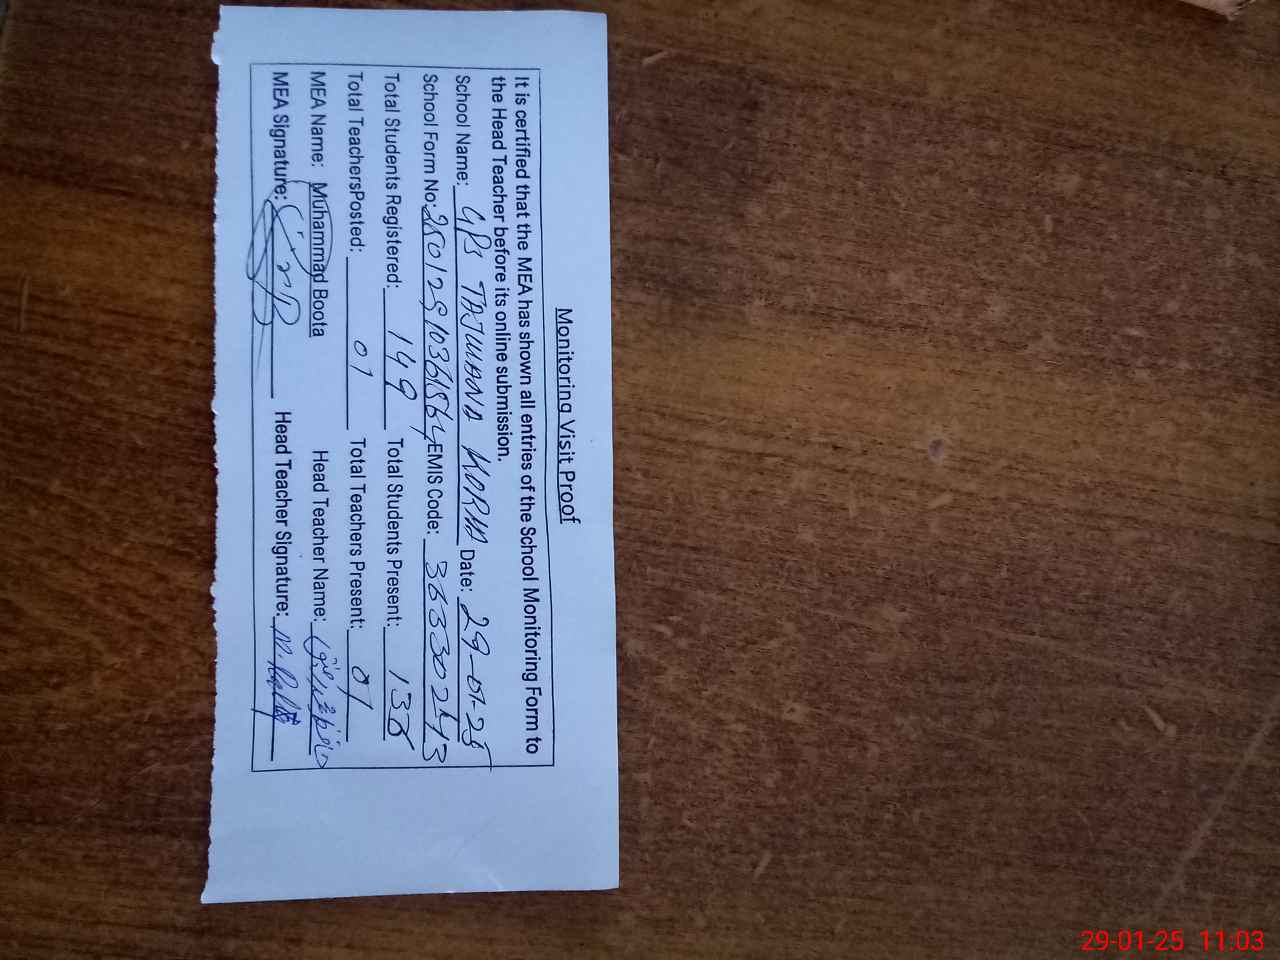 Monitoring Visit Proof
It is certified that the MEA has shown all entries of the School Monitoring Form to
the Head Teacher before its online submission.
School Name: GPS TAJWANA KORHA Date: 29-01-25
School Form No: EMIS Code:
Total Students Registered: 149 Total Students Present: 138
Total TeachersPosted: 01 Total Teachers Present: 01
MEA Name: Muhammad Boota Head Teacher Name:
MEA Signature: Head Teacher Signature:
29-01-25 11:03